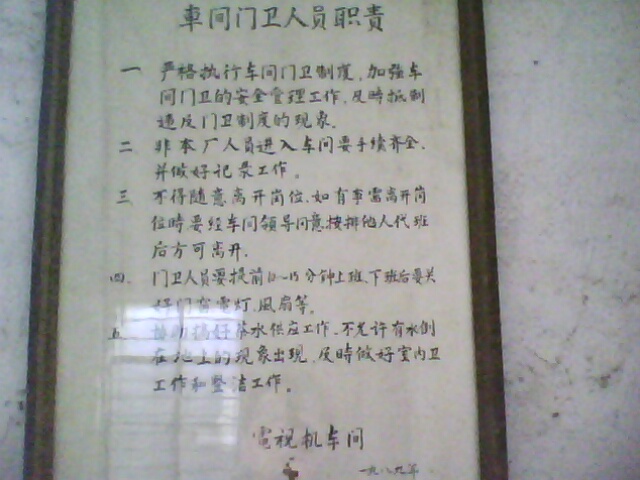 車间门卫人员职责
一 严格执行车间门卫制度,加强车
间门卫的安全管理工作,及時抵制
违反门卫制度的现象.
二 非本厂人员进入车间要手续齐全.
并做好记录工作。
三 不得随意离开岗位,如有事需离开岗
位時要经车间领导同意,按排他人代班
后方可离开.
四. 门卫人员要提前10—15分钟上班、下班后要关
好门窗電灯、風扇等。
五. 协助搞好茶水供应工作、不允许有水倒
在地上的现象出现,及時做好室内卫
工作和整洁工作。
電视机车间
一九八九年